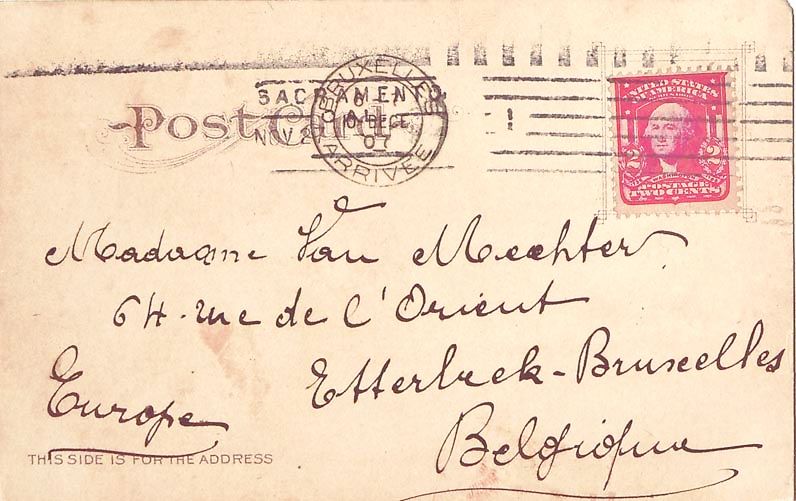 SACRAMENTO
NOV 2
BRUXELLES
10 DECE
07
ARRIVEE
Post Card
UNITED STATES
OF AMERICA
2 2
WASHINGTON
POSTAGE
TWO CENTS
Madame Van Mechter
64. rue de l'Orient
Etterbeek-Bruxelles
Europe
Belgique
THIS SIDE IS FOR THE ADDRESS